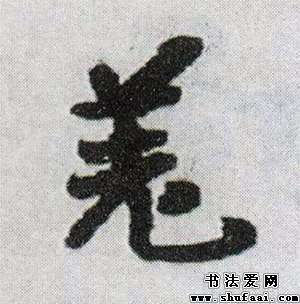 羗
书法爱网
www.shufaai.com